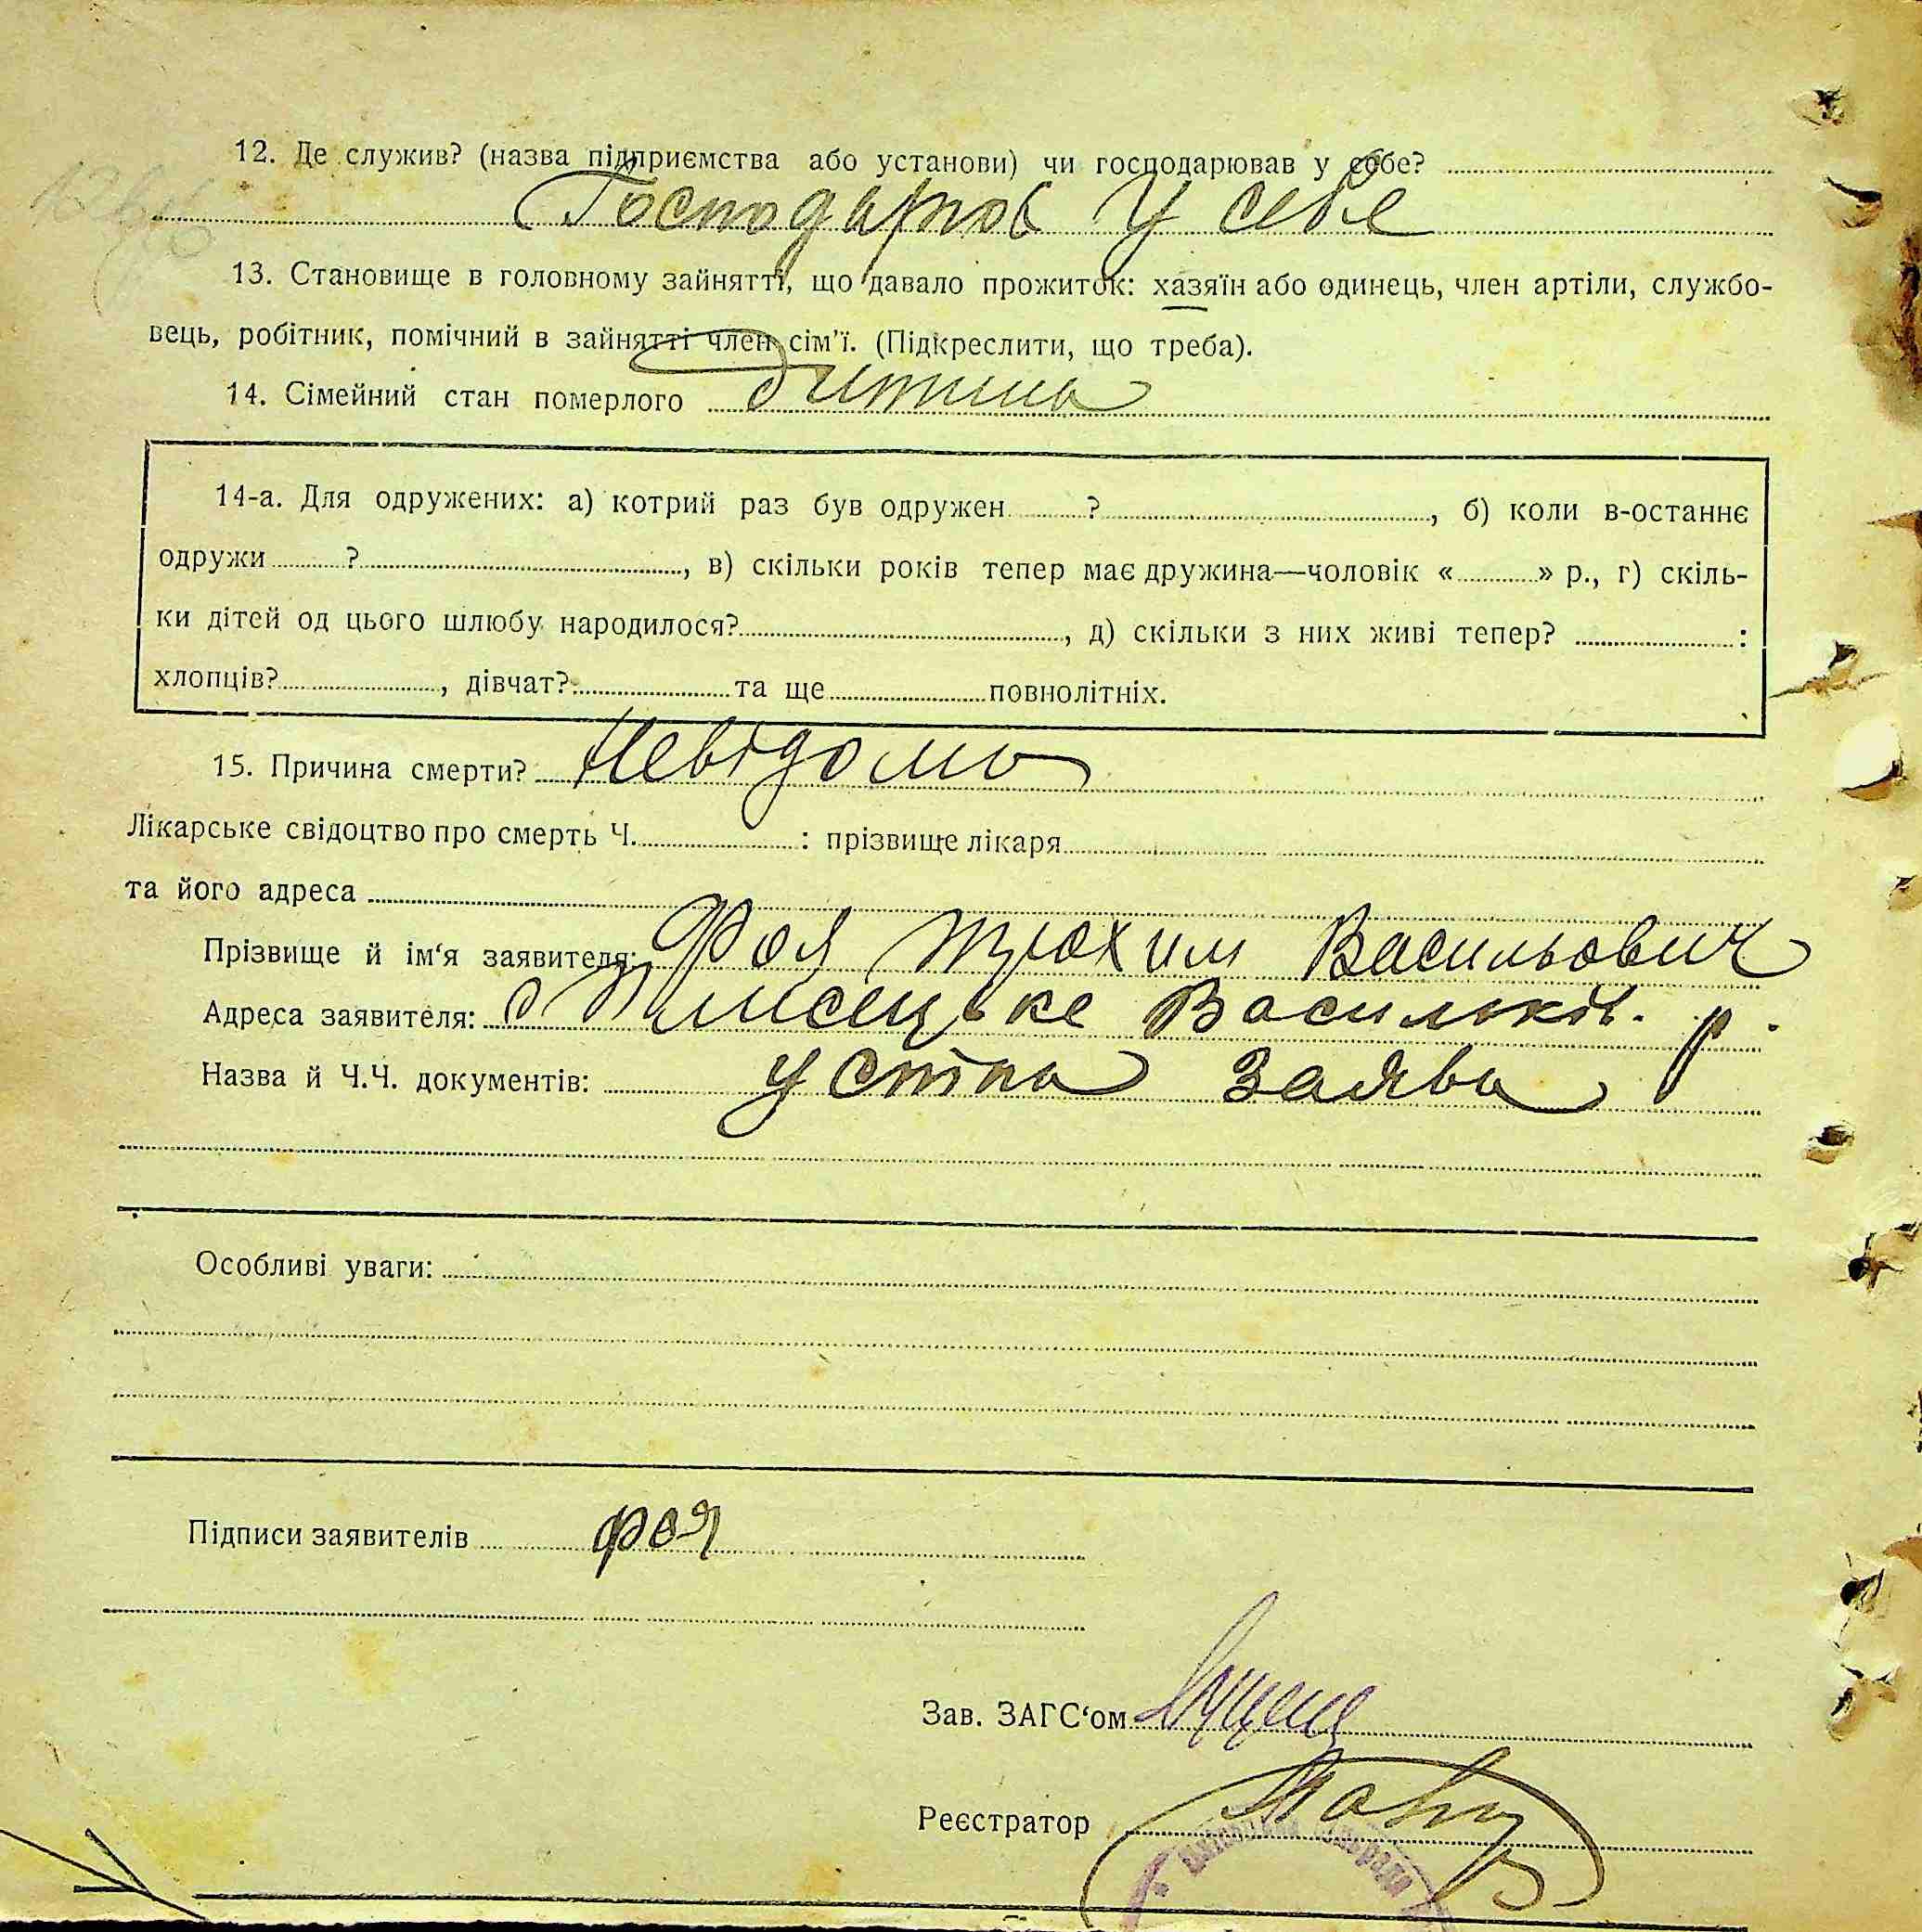 12. Де служив? (назва підприємства або установи) чи господарював у себе?
Господарюв у себе
13. Становище в головному зайнятті, що давало прожиток: хазяїн або одинець, член артіли, службо-
вець, робітник, помічний в зайнятті член сім'ї. (Підкреслити, що треба).
14. Сімейний стан померлого дитина
14-а. Для одружених: а) котрий раз був одружен ? , б) коли в-останнє
одружи ? , в) скільки років тепер має дружина—чоловік « » р., г) скіль-
ки дітей од цього шлюбу народилося? , д) скільки з них живі тепер? :
хлопців? , дівчат? та ще повнолітніх.
15. Причина смерти? Невідома
Лікарське свідоцтво про смерть Ч. : прізвище лікаря
та його адреса
Прізвище й ім'я заявителя: Фоя Васильович
Адреса заявителя: Васильків. р.
Назва й Ч.Ч. документів: устна заява
Особливі уваги:
Підписи заявителів Фоя
Зав. ЗАГС'ом
Реєстратор